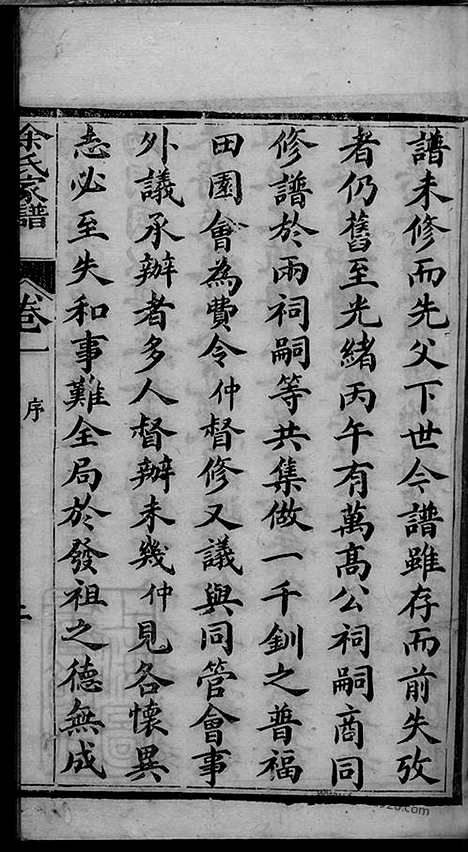 譜未修而先父下世今譜雖存而前失攷
者仍舊至光緒丙午有萬高公祠嗣商同
修譜於兩祠嗣等共集做一千釧之普福
田園會為費令仲督修又議與同管會事
外議承辦者多人督辦未幾仲見各懷異
志必至失和事難全局於發祖之德無成
余氏家譜
卷一
序